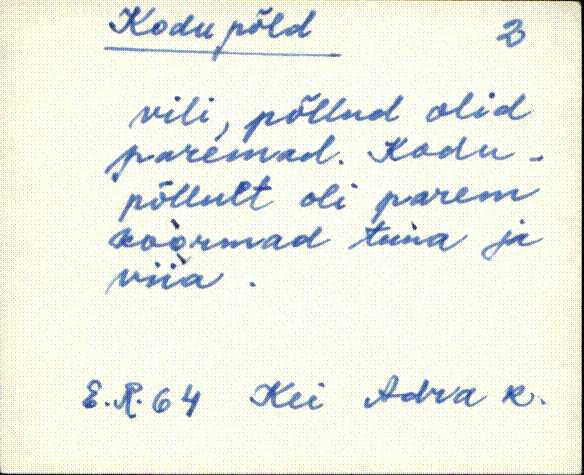 Kodu põld 2
vili, põllud olid
paremad. Kodu -
põllult oli parem
koormad tuua ja
viia.
E.R. 64 Kei Adra k.